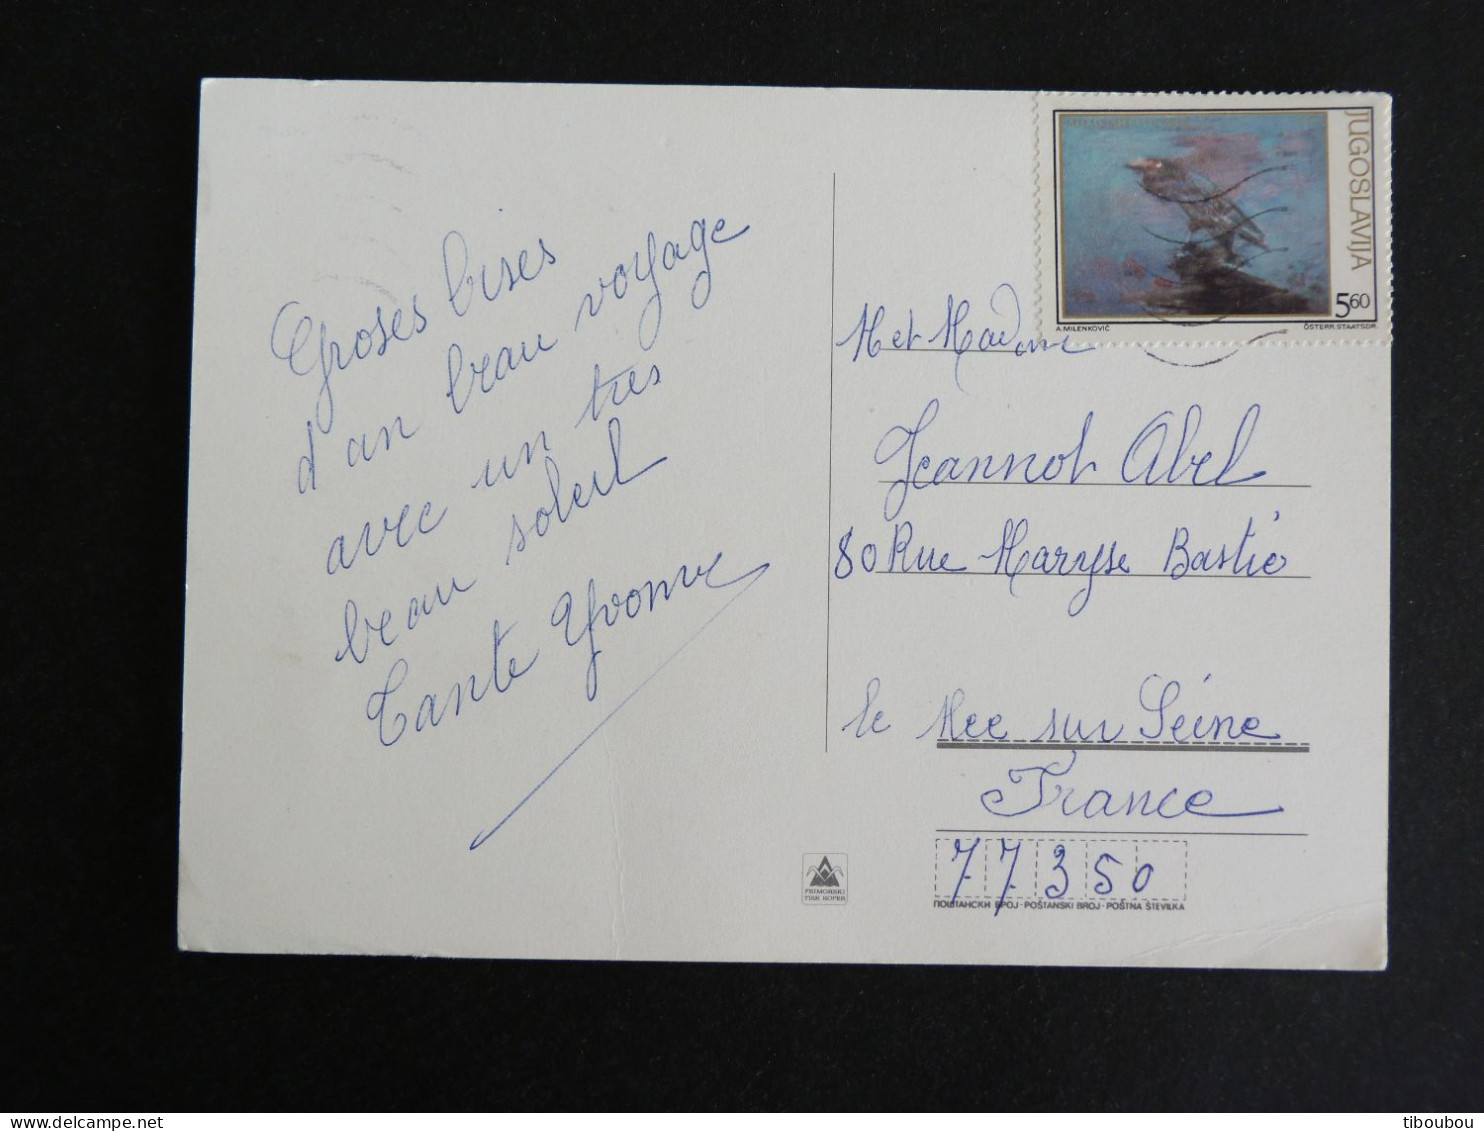 Groses bises
d'an beau voyage
avec un tres
beau soleil
Tante Yvonne
JUGOSLAVIJA
5,60
A. MILENKOVIĆ
ÖSTERR. STAATSDR.
M et Madame
Jeannot Abel
80 Rue Maryse Bastié
le Mee sur Seine
France
77350
ПОШТАНСКИ БРОЈ · POŠTANSKI BROJ · POŠTNA ŠTEVILKA
PRIMORSKI
TISK KOPER
tiboubou